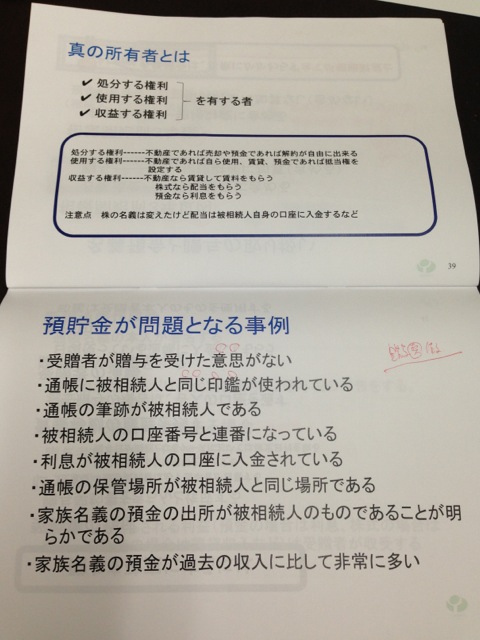 真の所有者とは
✔ 処分する権利
✔ 使用する権利
✔ 収益する権利
を有する者
処分する権利------不動産であれば売却や預金であれば解約が自由に出来る
使用する権利------不動産であれば自ら使用、賃貸、預金であれば抵当権を
設定する
収益する権利------不動産なら賃貸して賃料をもらう
株式なら配当をもらう
預金なら利息をもらう
注意点 株の名義は変えたけど配当は被相続人自身の口座に入金するなど
39
預貯金が問題となる事例
・受贈者が贈与を受けた意思がない
・通帳に被相続人と同じ印鑑が使われている
・通帳の筆跡が被相続人である
・被相続人の口座番号と連番になっている
・利息が被相続人の口座に入金されている
・通帳の保管場所が被相続人と同じ場所である
・家族名義の預金の出所が被相続人のものであることが明
らかである
・家族名義の預金が過去の収入に比して非常に多い